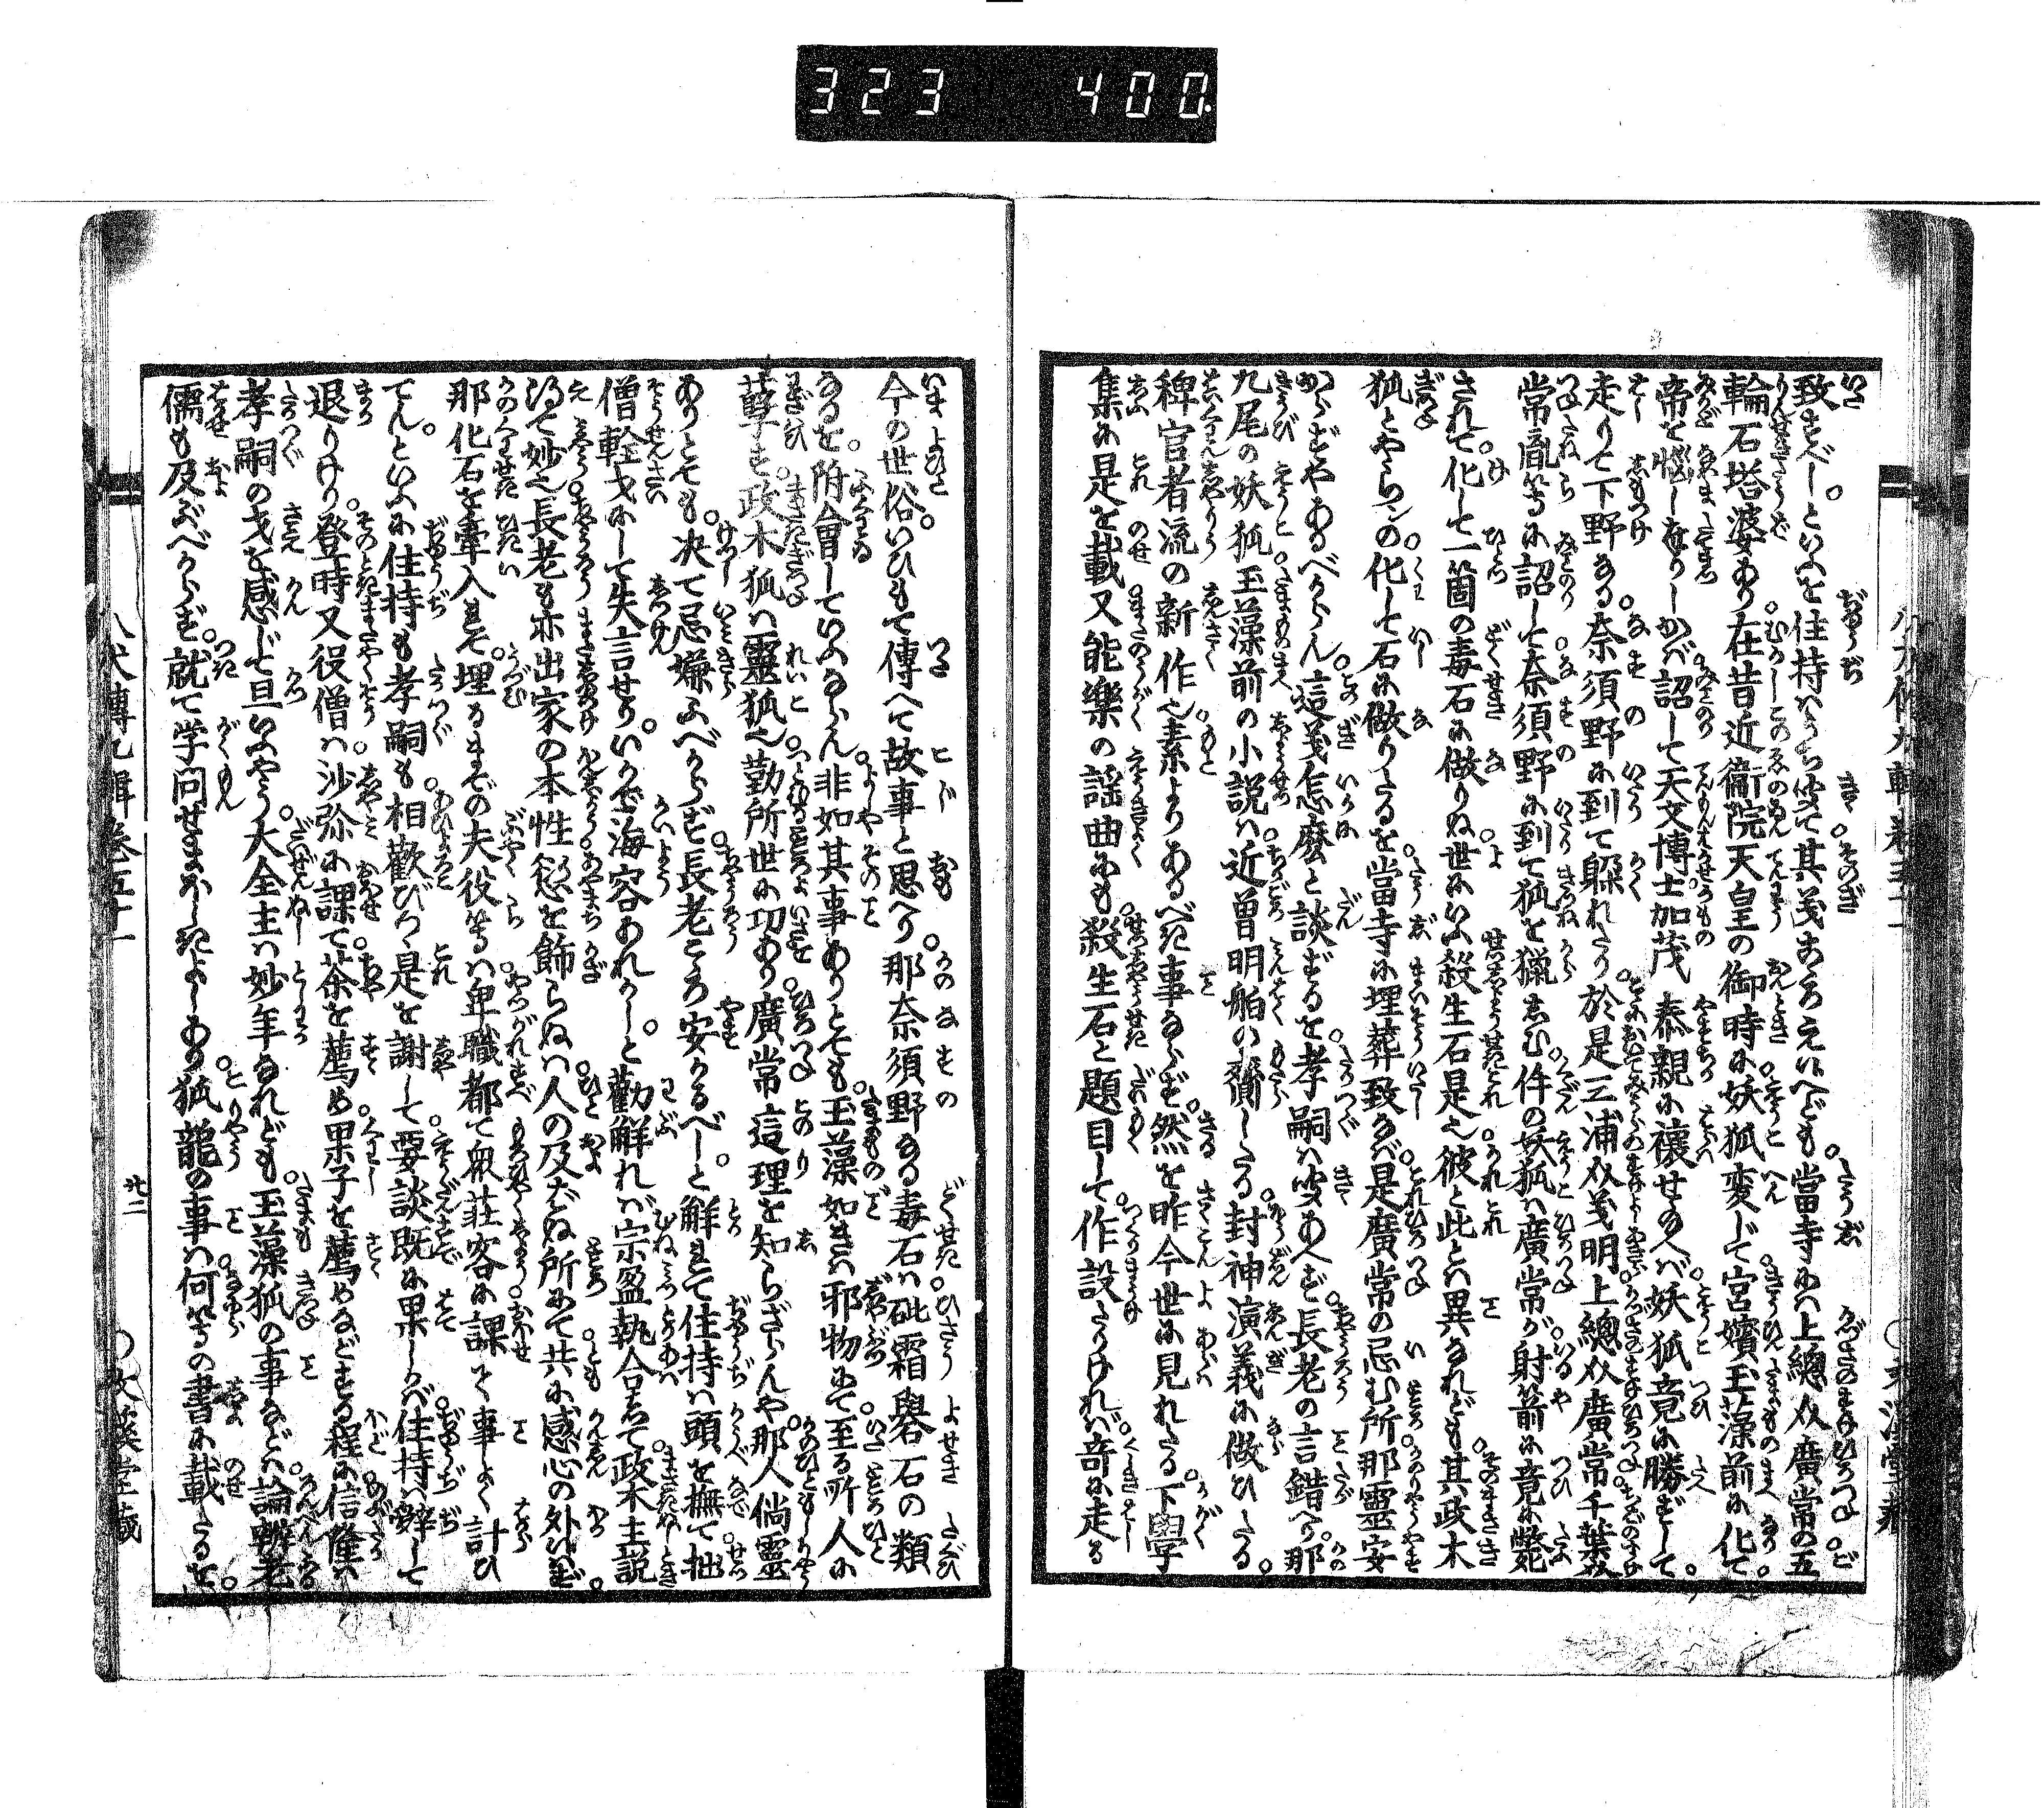 323 400.
致すべし。といふを住持はうち聞て其義あらんいへども。當寺には上總介廣常の五
輪石塔婆あり在昔近衞院天皇の御時に妖狐変じて宮嬪玉藻前に化て
帝を惱しまゐらせしかば詔して天文博士加茂泰親に禳せ給へば妖狐竟に勝ずして
走りて下野なる奈須野に到て躱れたり於是三浦介義明上總介廣常千葉介
常胤等に詔して奈須野に到て狐を獵しむ件の妖狐は廣常が射箭に竟に斃
されて。化して一箇の毒石に做りぬ世にいふ殺生石是也彼と此とは異なれども其政木
狐とやらンの化して石に做りたるを當寺に埋葬致さば是廣常の忌む所那靈安
からずやあるべからん這義怎麼と談ずるを孝嗣は聞あへず長老の言錯へり那
九尾の妖狐玉藻前の小説は近曾明舶の齎したる封神演義に做ひたる。
稗官者流の新作也素よりあるべき事ならず然を昨今世に見れたる下學
集に是を載又能樂の謡曲にも殺生石と題目して作設たりければ奇に走る
今の世俗。いひもて傳へて故事と思へり那奈須野なる毒石は砒霜礜石の類
なるを。附會していふならん非如其事ありとても玉藻如きは邪物にて至る所人に
孽す。政木狐は靈狐也勤所世に功あり廣常這理を知らざらんや那人倘靈
ありとても。决て忌嫌ふべからず長老こゝろ安かるべし。と觧れて住持は頭を撫て拙
僧輇才にして失言せり。いかで海容あれかし。と勸觧れば宗盈執合して政木主説
得て妙也長老も亦出家の本性慾を飾らぬは人の及ばぬ所にて共に感心の外はず。
那化石を牽入れて。埋るまでの夫役等は卑職都て衆莊客に課て事よく計ひ
てん。といふに住持も孝嗣も相歡びつ是を謝して要談既に果しかば住持は辭して
退りけり登時又役僧は沙弥に課て茶を薦め果子を薦めなどする程に信隆は
孝嗣の才を感じて且いふやう。大全主は妙年なれども。玉藻狐の事などは論辨老
儒も及ぶべからず。就て学問せまほしきよしあり。狐龍の事は何等の書に載たるを。
八犬傳九輯卷五十一
廿二
文溪堂藏